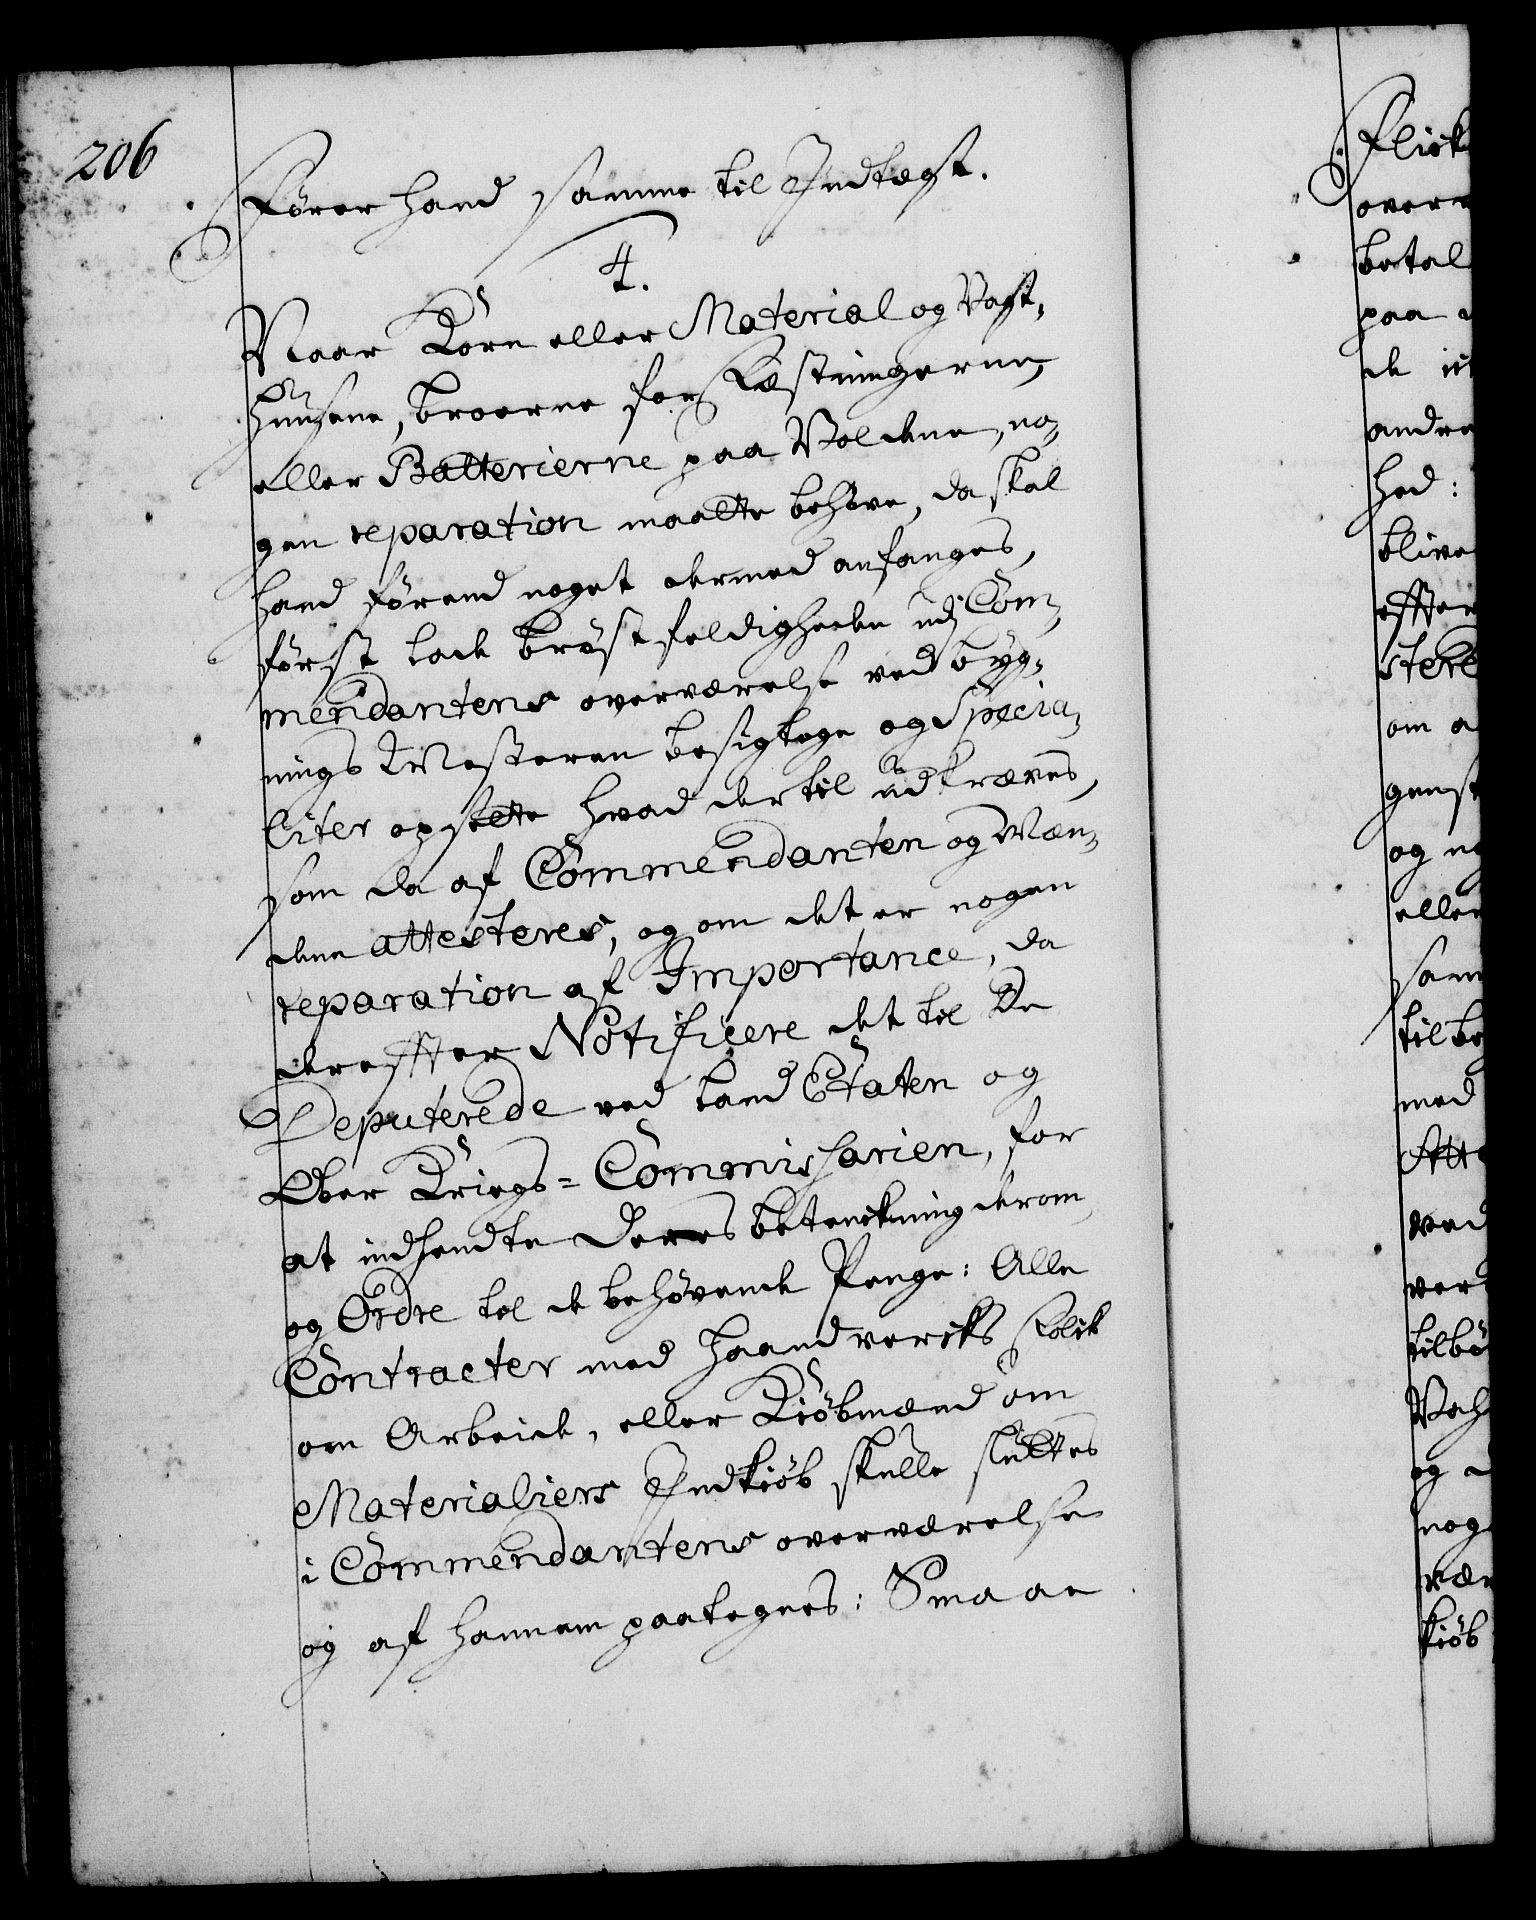 206
Fører hand samme til Indtægt.
4.
Naar Korn eller Material og Vagt-
huusene, broerne for Fæstningerne,
eller Batterierne paa Voldene, no-
gen reparation maatte behøve, da skal
hand førend noget dermed anfanges,
først lade brøstfeldigheden udj Com-
mendantens overværelse ved byg-
nings Mesteren besigtege og Specia-
liter opsette hvad dertil udkræves,
som da af Commendanten og Mæn-
dene attesteres, og om det er nogen
reparation af Importance, da
dereffter Notificere det til De
Deputerede ved Land Etaten og
Ober Kriegs-Commissarien, for
at indhendte Deres betenkning derom,
og Ordre til de behøvende Penge: Alle
Contracter med Haandverks Folck
om Arbeide, eller Kiøbmænd om
Materialiers Indkiøb skulle sluttes
i Commendantens overværelse
og af hannem paategnes: Smaae
overv
betal
paa
de
andre
hed:
blive
effter
stere
om a
og
eller
sam
til be
med
Atte
ved
ver
tilbø
og
nog
vær
kiøb